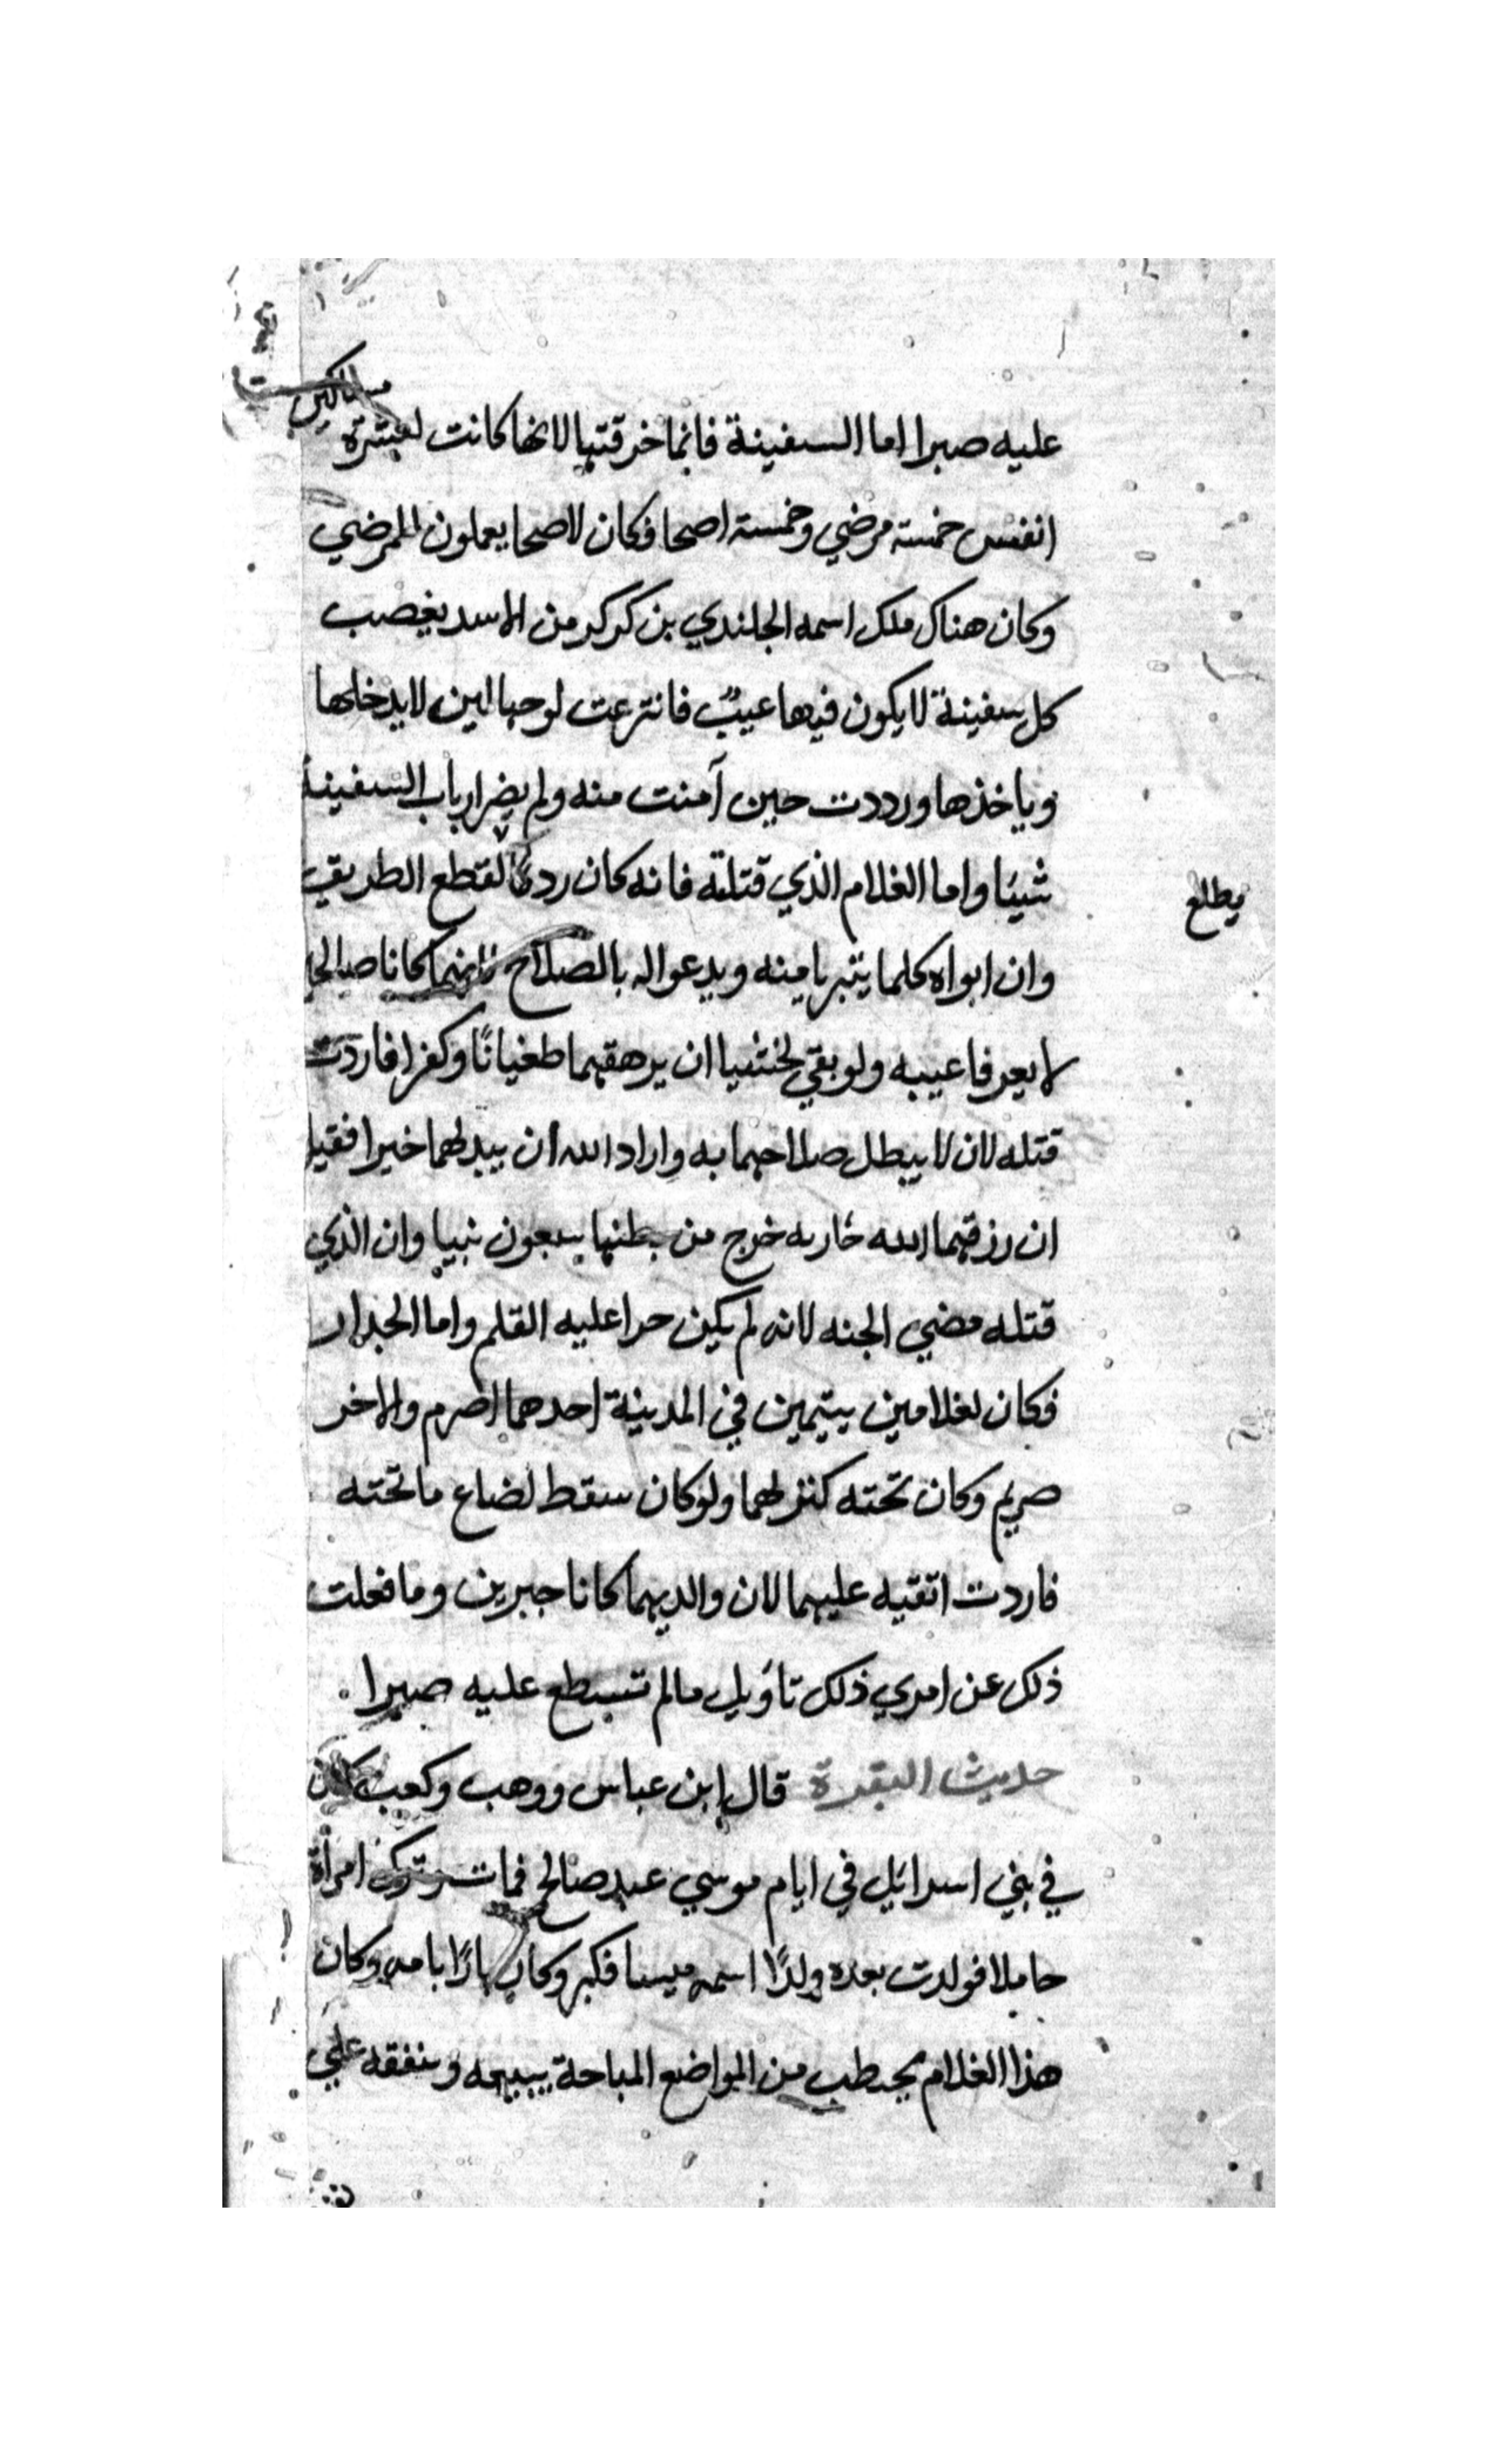 مساكين
عليه صبرا اما السفينة فانما خرقتها لانها كانت لعشرة
انفس خمسة مرضي وخمسة اصحا فكان لاصحا يعملون للمرضي
وكان هناك ملك اسمه الجلندي بن كركر من الاسد يغصب
كل سفينة لا يكون فيها عيبٌ فانترعت لوحها لين لا يدخلها
وياخذها ورددت حين آمنت منه ولم يضر ارباب السفينة
شيئا واما الغلام الذي قتلته فانه كان ردئا لقطع الطريق
يطلع
وان ابواه كلما يتبريا منه ويدعوا له بالصلاح فانهما كانا صالحا
لا يعرفا عيبه ولو بقي لخشيا ان يرهقهما طغيانًا وكفرا فاردت
قتله لان لا يبطل صلاحهما به واراد الله ان يبدلهما خيرا فقيل
ان رزقهما الله جاريه خرج من بطنها سبعون نبيا وان الذي
قتله مضي الجنه لانه لم يكن جرا عليه القلم واما الجدار
فكان لغلامين يتيمين في المدينة احدهما اصرم والاخر
صريم وكان تحته كنز لهما ولو كان سقط لضاع ما تحته
فاردت اتقيه عليهما لان والديهما كانا خيرين وما فعلت
ذلك عن امري ذلك تاؤيل مالم تسطع عليه صبرا
حديث البقرة قال ابن عباس ووهب وكعب كان
في بني اسرائيل في ايام موسي عبد صالح فمات وترك امرأة
حاملا فولدت بعده ولدًا اسمه ميسا فكبر وكان بارًا بامه وكان
هذا الغلام يحتطب من المواضع المباحة يبيعه وينفقه علي